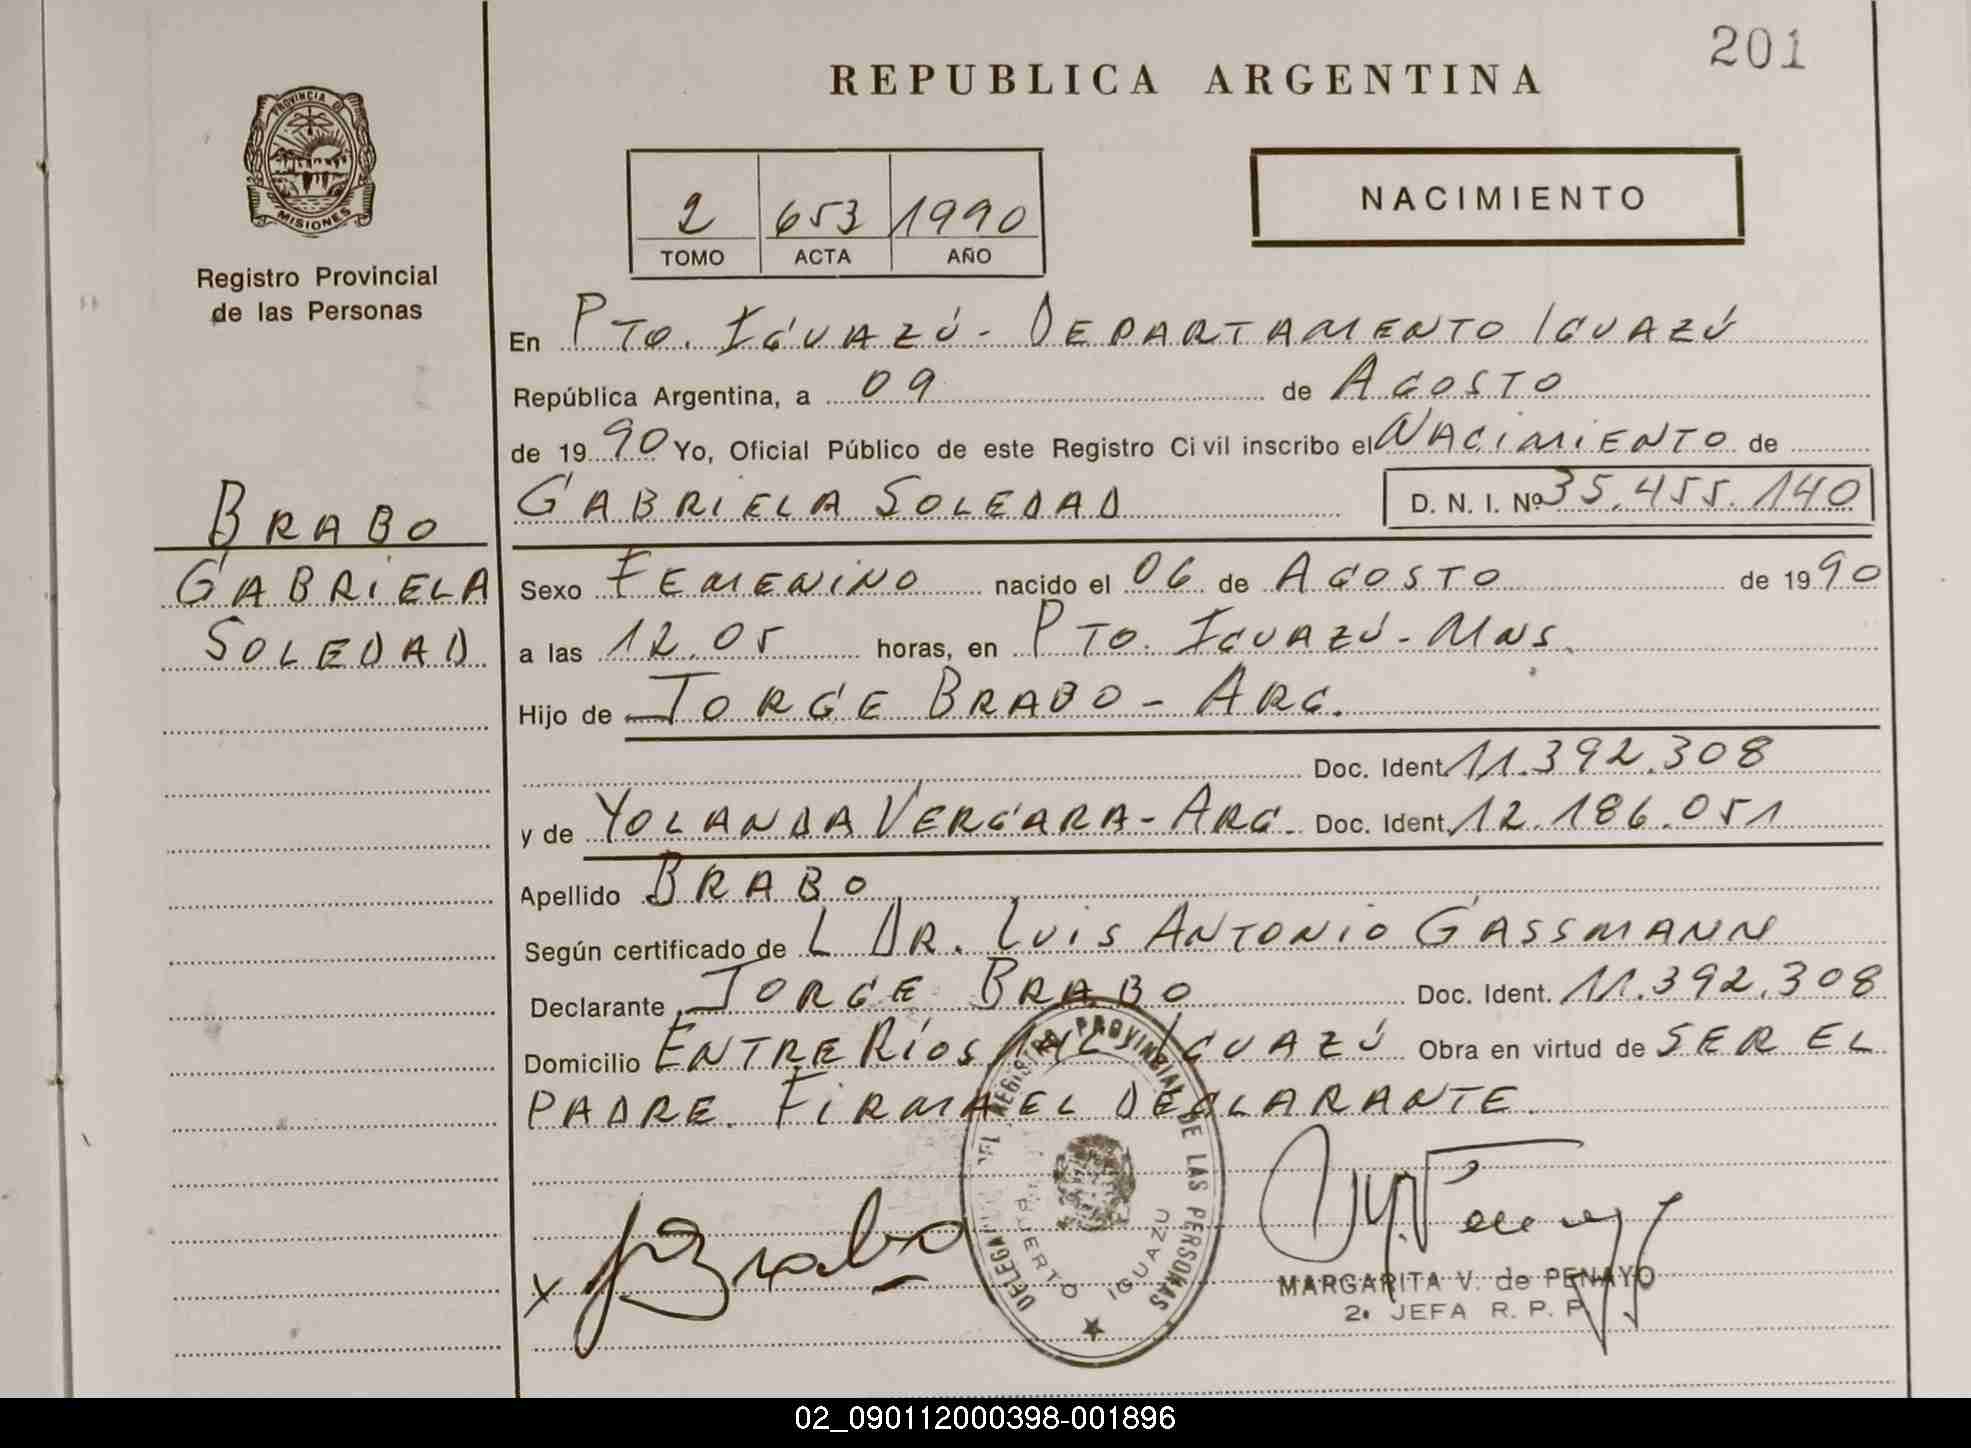 201
REPUBLICA ARGENTINA
PROVINCIA DE
MISIONES
Registro Provincial
de las Personas
2 653 1990
TOMO ACTA AÑO
NACIMIENTO
En PTO. IGUAZÚ - DEPARTAMENTO IGUAZÚ
República Argentina, a 09 de AGOSTO
de 1990 Yo, Oficial Público de este Registro Civil inscribo el NACIMIENTO de
GABRIELA SOLEDAD D. N. I. Nº 35.455.140
BRABO
GABRIELA
SOLEDAD
Sexo FEMENINO nacido el 06 de AGOSTO de 1990
a las 12.05 horas, en PTO. IGUAZÚ - MNS.
Hijo de JORGE BRABO - ARG.
Doc. Ident. 11.392.308
y de YOLANDA VERGARA - ARG. Doc. Ident. 12.186.051
Apellido BRABO
Según certificado de L DR. LUIS ANTONIO GASSMANN
Declarante JORGE BRABO Doc. Ident. 11.392.308
Domicilio ENTRE RÍOS IGUAZÚ Obra en virtud de SER EL
PADRE. FIRMA EL DECLARANTE.
DEL REGISTRO PROVINCIAL DE LAS PERSONAS
PUERTO IGUAZU
X J Brabo
MARGARITA V. de PENAYO
2a JEFA R. P. P.
02_090112000398-001896